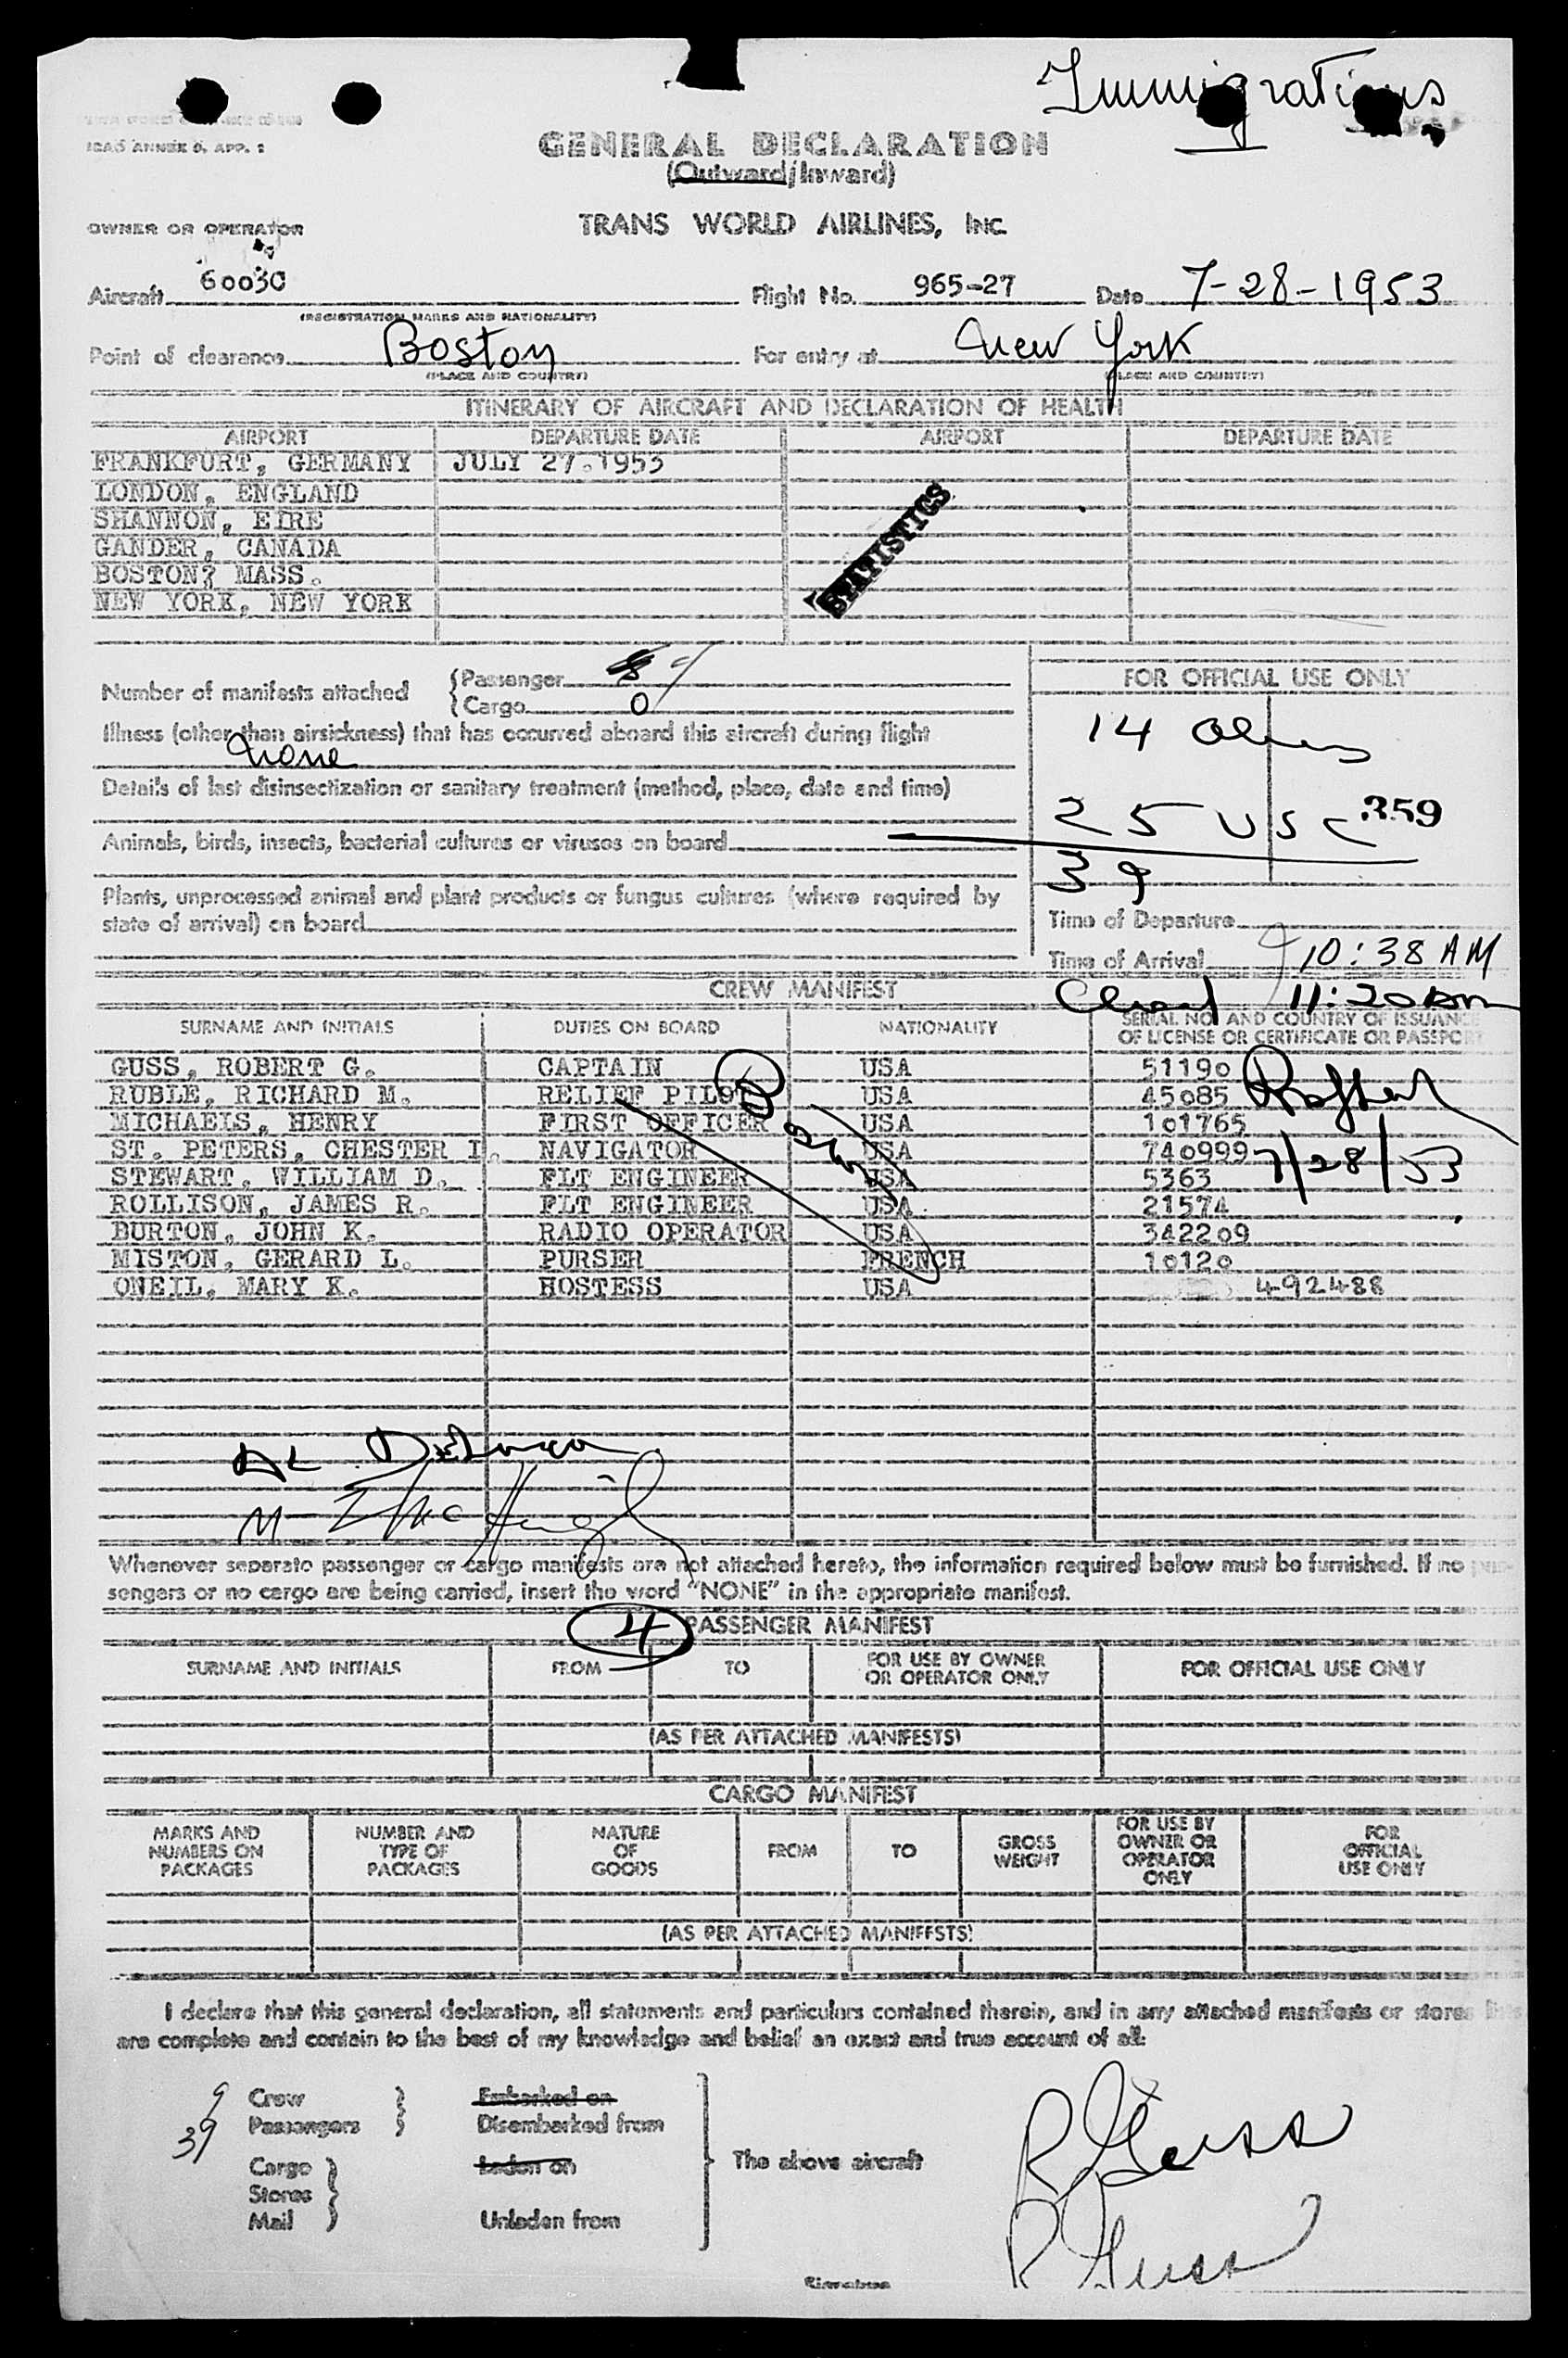 Immigrations
ICAO ANNEX 9, APP. 1
GENERAL DECLARATION
(Outward/Inward)
OWNER OR OPERATOR TRANS WORLD AIRLINES, Inc.
Aircraft 6003C Flight No. 965-27 Date 7-28-1953
(REGISTRATION MARKS AND NATIONALITY)
Point of clearance Boston For entry at New York
(PLACE AND COUNTRY) (PLACE AND COUNTRY)
ITINERARY OF AIRCRAFT AND DECLARATION OF HEALTH
AIRPORT DEPARTURE DATE AIRPORT DEPARTURE DATE
FRANKFURT, GERMANY JULY 27.1953
LONDON, ENGLAND
SHANNON, EIRE
GANDER, CANADA
BOSTON, MASS.
NEW YORK, NEW YORK
STATISTICS
Number of manifests attached
Passenger
Cargo 0
FOR OFFICIAL USE ONLY
14 Aliens
Illness (other than airsickness) that has occurred aboard this aircraft during flight
None
Details of last disinsectization or sanitary treatment (method, place, date and time)
25 USC 359
Animals, birds, insects, bacterial cultures or viruses on board
39
Plants, unprocessed animal and plant products or fungus cultures (where required by
state of arrival) on board
Time of Departure
Time of Arrival 10:38 AM
11:20 AM
CREW MANIFEST
SURNAME AND INITIALS DUTIES ON BOARD NATIONALITY SERIAL NO. AND COUNTRY OF ISSUANCE
OF LICENSE OR CERTIFICATE OR PASSPORT
GUSS, ROBERT G. CAPTAIN USA 51190
RUBLE, RICHARD M. RELIEF PILOT USA 45085
MICHAELS, HENRY FIRST OFFICER USA 101765
ST. PETERS, CHESTER I. NAVIGATOR USA 740999 7/28/53
STEWART, WILLIAM D. FLT ENGINEER USA 5363
ROLLISON, JAMES R. FLT ENGINEER USA 21574
BURTON, JOHN K. RADIO OPERATOR USA 342209
MISTON, GERARD L. PURSER FRENCH 10120
ONEIL, MARY K. HOSTESS USA 492488
Whenever separate passenger or cargo manifests are not attached hereto, the information required below must be furnished. If no pas-
sengers or no cargo are being carried, insert the word "NONE" in the appropriate manifest.
4 PASSENGER MANIFEST
SURNAME AND INITIALS FROM TO FOR USE BY OWNER
OR OPERATOR ONLY FOR OFFICIAL USE ONLY
(AS PER ATTACHED MANIFESTS)
CARGO MANIFEST
MARKS AND
NUMBERS ON
PACKAGES
NUMBER AND
TYPE OF
PACKAGES
NATURE
OF
GOODS
FROM
TO
GROSS
WEIGHT
FOR USE BY
OWNER OR
OPERATOR
ONLY
FOR
OFFICIAL
USE ONLY
(AS PER ATTACHED MANIFESTS)
I declare that this general declaration, all statements and particulars contained therein, and in any attached manifests or stores lists
are complete and contain to the best of my knowledge and belief an exact and true account of all:
9 Crew Embarked on
39 Passengers Disembarked from
Cargo Laden on The above aircraft
Stores
Mail Unladen from
R Guss
R Guss
Signature